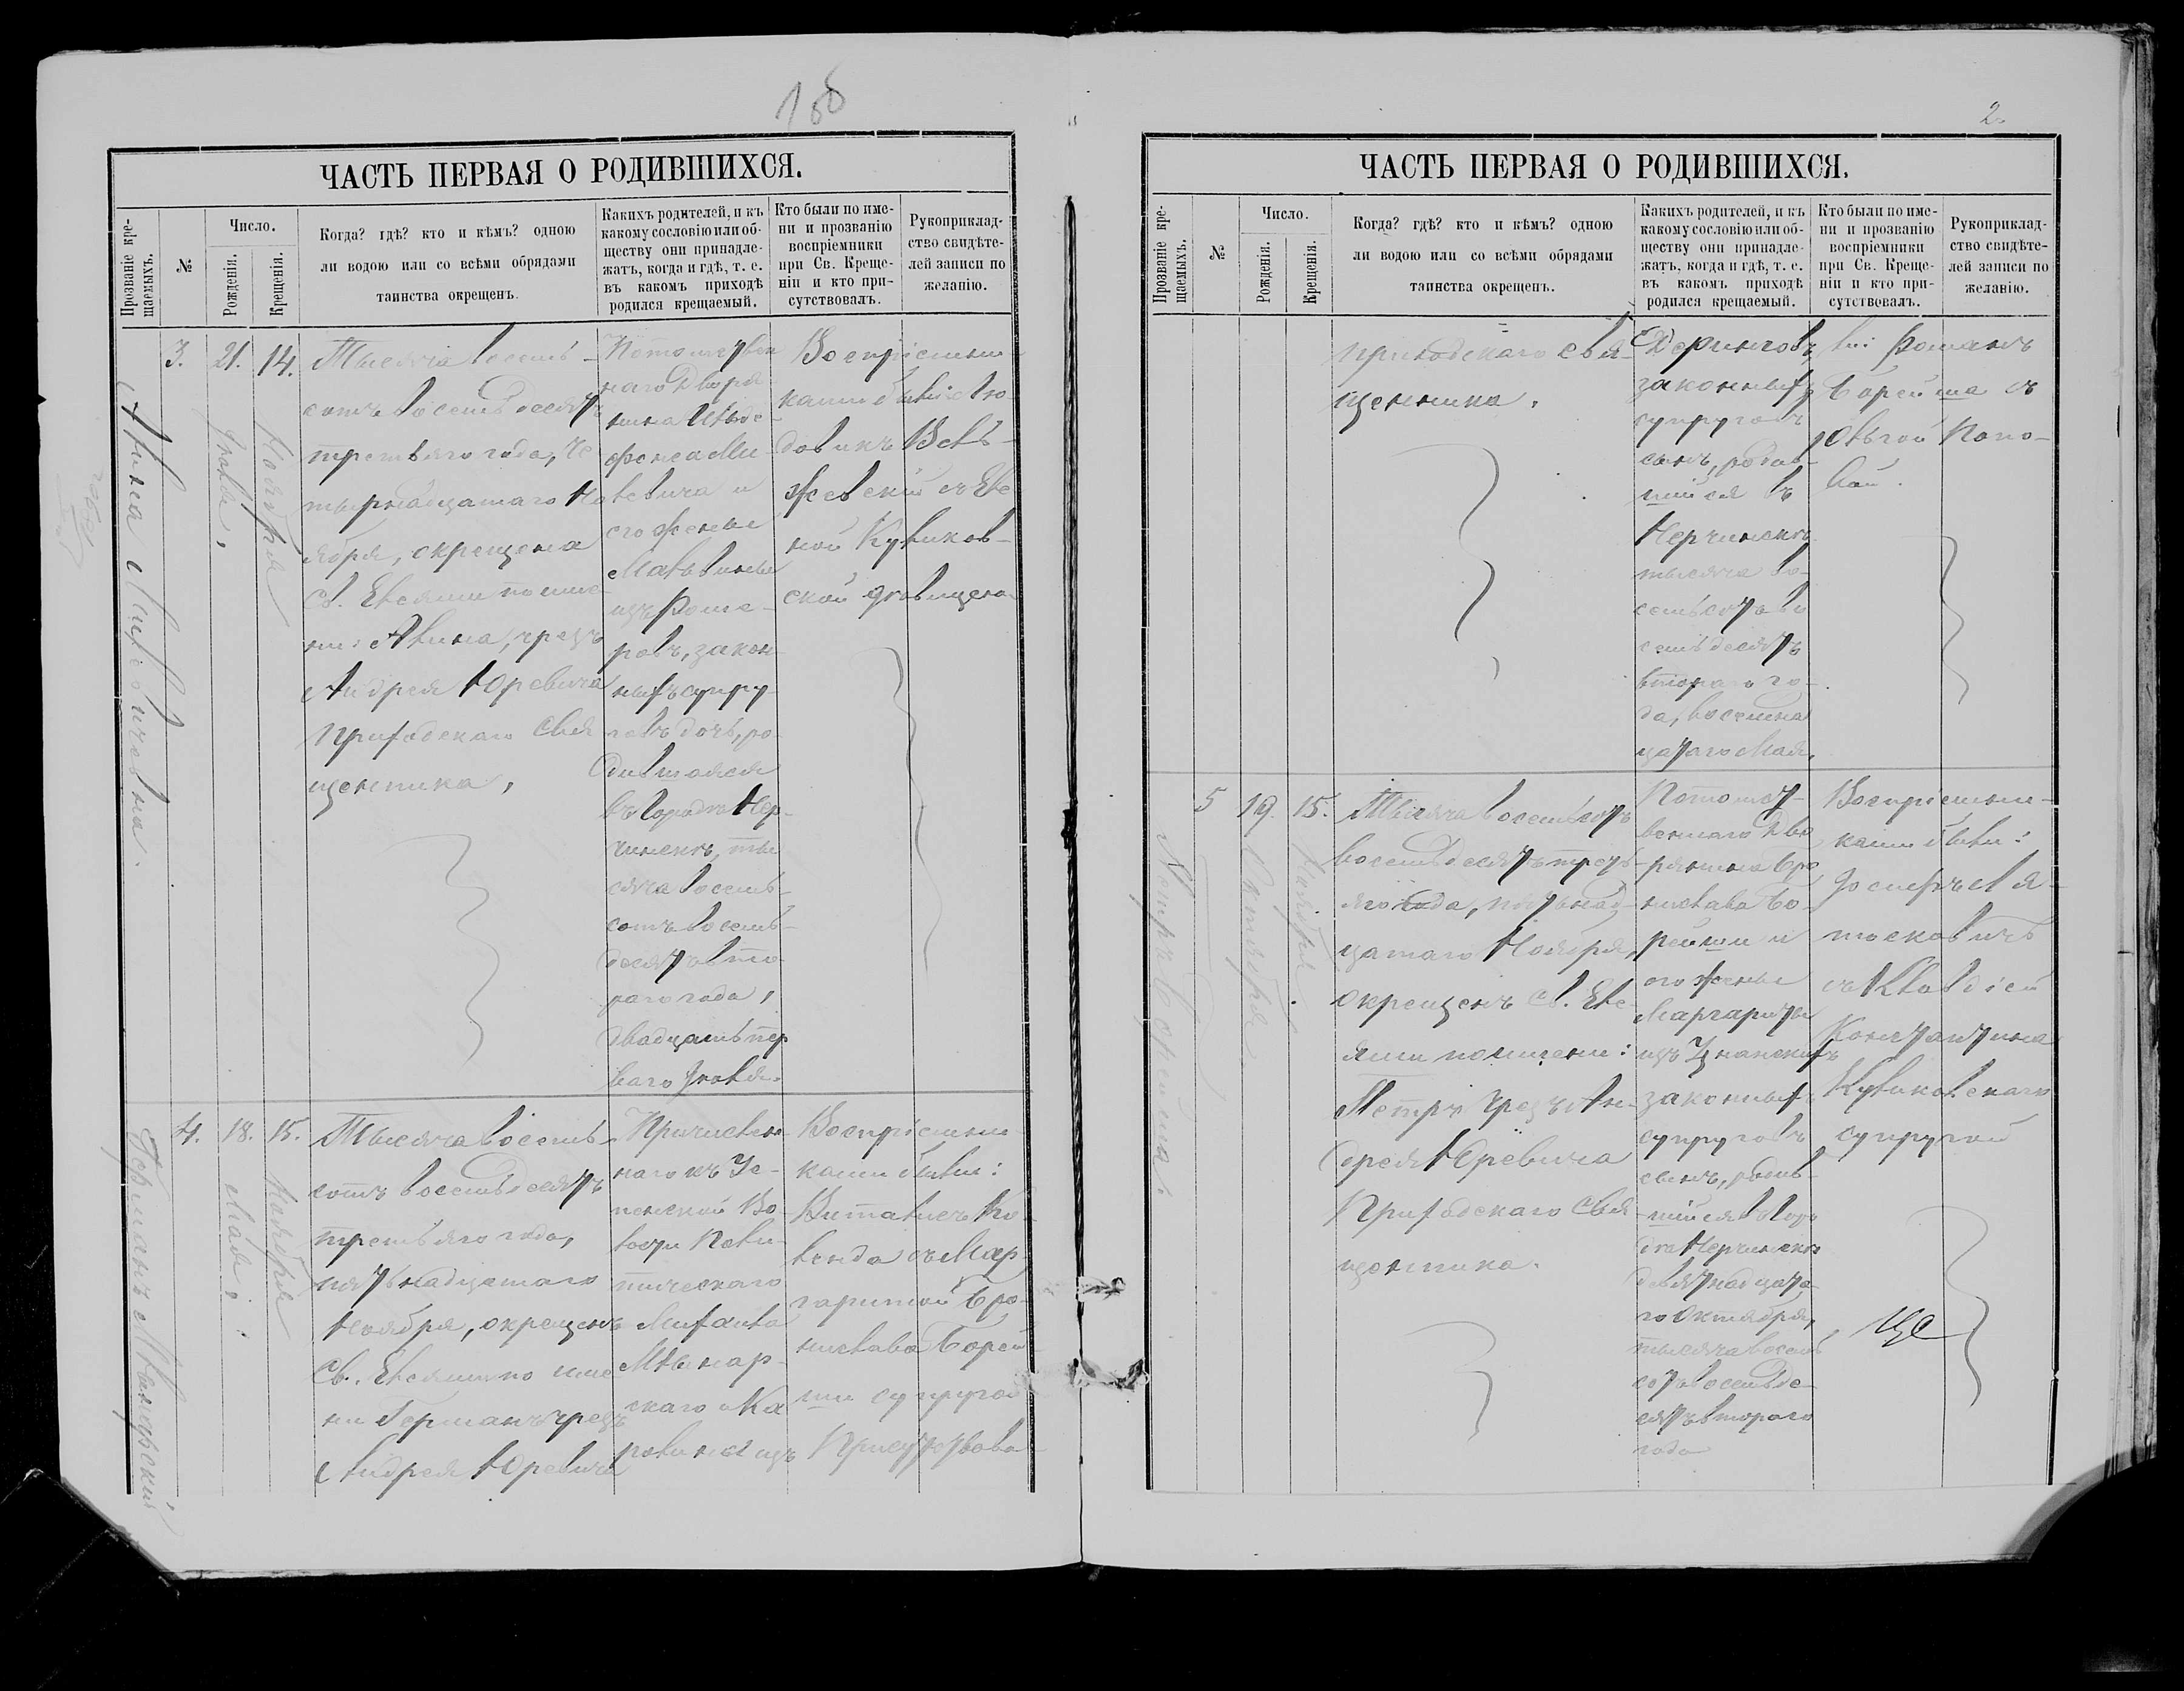 158
ЧАСТЬ ПЕРВАЯ О РОДИВШИХСЯ.
Прозваніе кре-
щаемыхъ.
№
Число.
Рожденія.
Крещенія.
Когда? гдѣ? кто и кѣмъ? одною
ли водою или со всѣми обрядами
таинства окрещенъ.
Какихъ родителей, и къ
какому сословію или об-
ществу они принадле-
жатъ, когда и гдѣ, т. е.
въ какомъ приходѣ
родился крещаемый.
Кто были по име-
ни и прозванію
воспріемники
при Св. Креще-
ніи и кто при-
сутствовалъ.
Рукоприклад-
ство свидѣте-
лей записи по
желанію.
3.
21.
Іюля,
14.
Ноября
Тысяча восемь-
сотъ восемьдесятъ
третьяго года, че
тырнадцатаго Но
ября, окрещена
Св. Елеями по име
ни: Алина, чрезъ
Андрея Юревича
Приходскаго Свя
щенника,
Потомствен
наго Дворя-
нина
его жены
Мальвины
изъ
ровъ, закон-
ныхъ супру-
говъ дочь, ро
дившаяся
въ городѣ Нер-
чинскѣ, ты
сяча восемь-
сотъ восемь-
десятъ вто-
раго года,
двадцать пер
ваго Іюля.
Воспріемни
ками были: Лю-
довикъ
съ Еле
ной Куликов-
ской дѣвицею.
4.
18.
Мая,
15.
Ноября
Тысяча восемь-
сотъ восемьдесятъ
третьяго года,
пятьнадцатаго
Ноября, окрещенъ
Св. Елеями по име
ни Германъ чрезъ
Андрея Юревича
Причислен-
наго къ
Во-
лости
Михаила
Млынар-
скаго и Ка
ролины изъ
Воспріемни-
ками были:
Виталисъ Ко-
ленда съ Мар
гаритой Бро-
нислава Борей-
ши супругой
Присутствова-
2.
ЧАСТЬ ПЕРВАЯ О РОДИВШИХСЯ.
Прозваніе кре-
щаемыхъ.
№
Число.
Рожденія.
Крещенія.
Когда? гдѣ? кто и кѣмъ? одною
ли водою или со всѣми обрядами
таинства окрещенъ.
Какихъ родителей, и къ
какому сословію или об-
ществу они принадле-
жатъ, когда и гдѣ, т. е.
въ какомъ приходѣ
родился крещаемый.
Кто были по име-
ни и прозванію
воспріемники
при Св. Креще-
ніи и кто при-
сутствовалъ.
Рукоприклад-
ство свидѣте-
лей записи по
желанію.
приходскаго свя-
щенника.
законныхъ
супруговъ
сынъ, родив-
шійся въ
Нерчинскѣ
тысяча во-
семьсотъ во
семьдесятъ
втораго го-
да, восемна
цатаго Мая.
ли: Романъ
Борейша съ
5
19.
Октября
15.
Ноября
Петръ Борейша.
Тысяча восемьсотъ
восемьдесятъ треть-
яго года, пятьнад-
цатаго Ноября,
окрещенъ Св. Еле-
ями по имени:
Петръ чрезъ Ан-
дрея Юревича
Приходскаго Свя
щенника.
Потомст-
веннаго Дво
рянина Бро
нислава Бо-
рейши и
его жены
Маргариты
изъ
законныхъ
супруговъ
сынъ, родив-
шійся въ горо
дѣ Нерчинскѣ
девятнадцата
го Октября,
тысяча восемь
сотъ восемьде-
сятъ втораго
года
Воспріемни-
ками были:
Іосифъ Ля-
сковичъ
съ Клавдіей
Константина
Куликовскаго
супругой